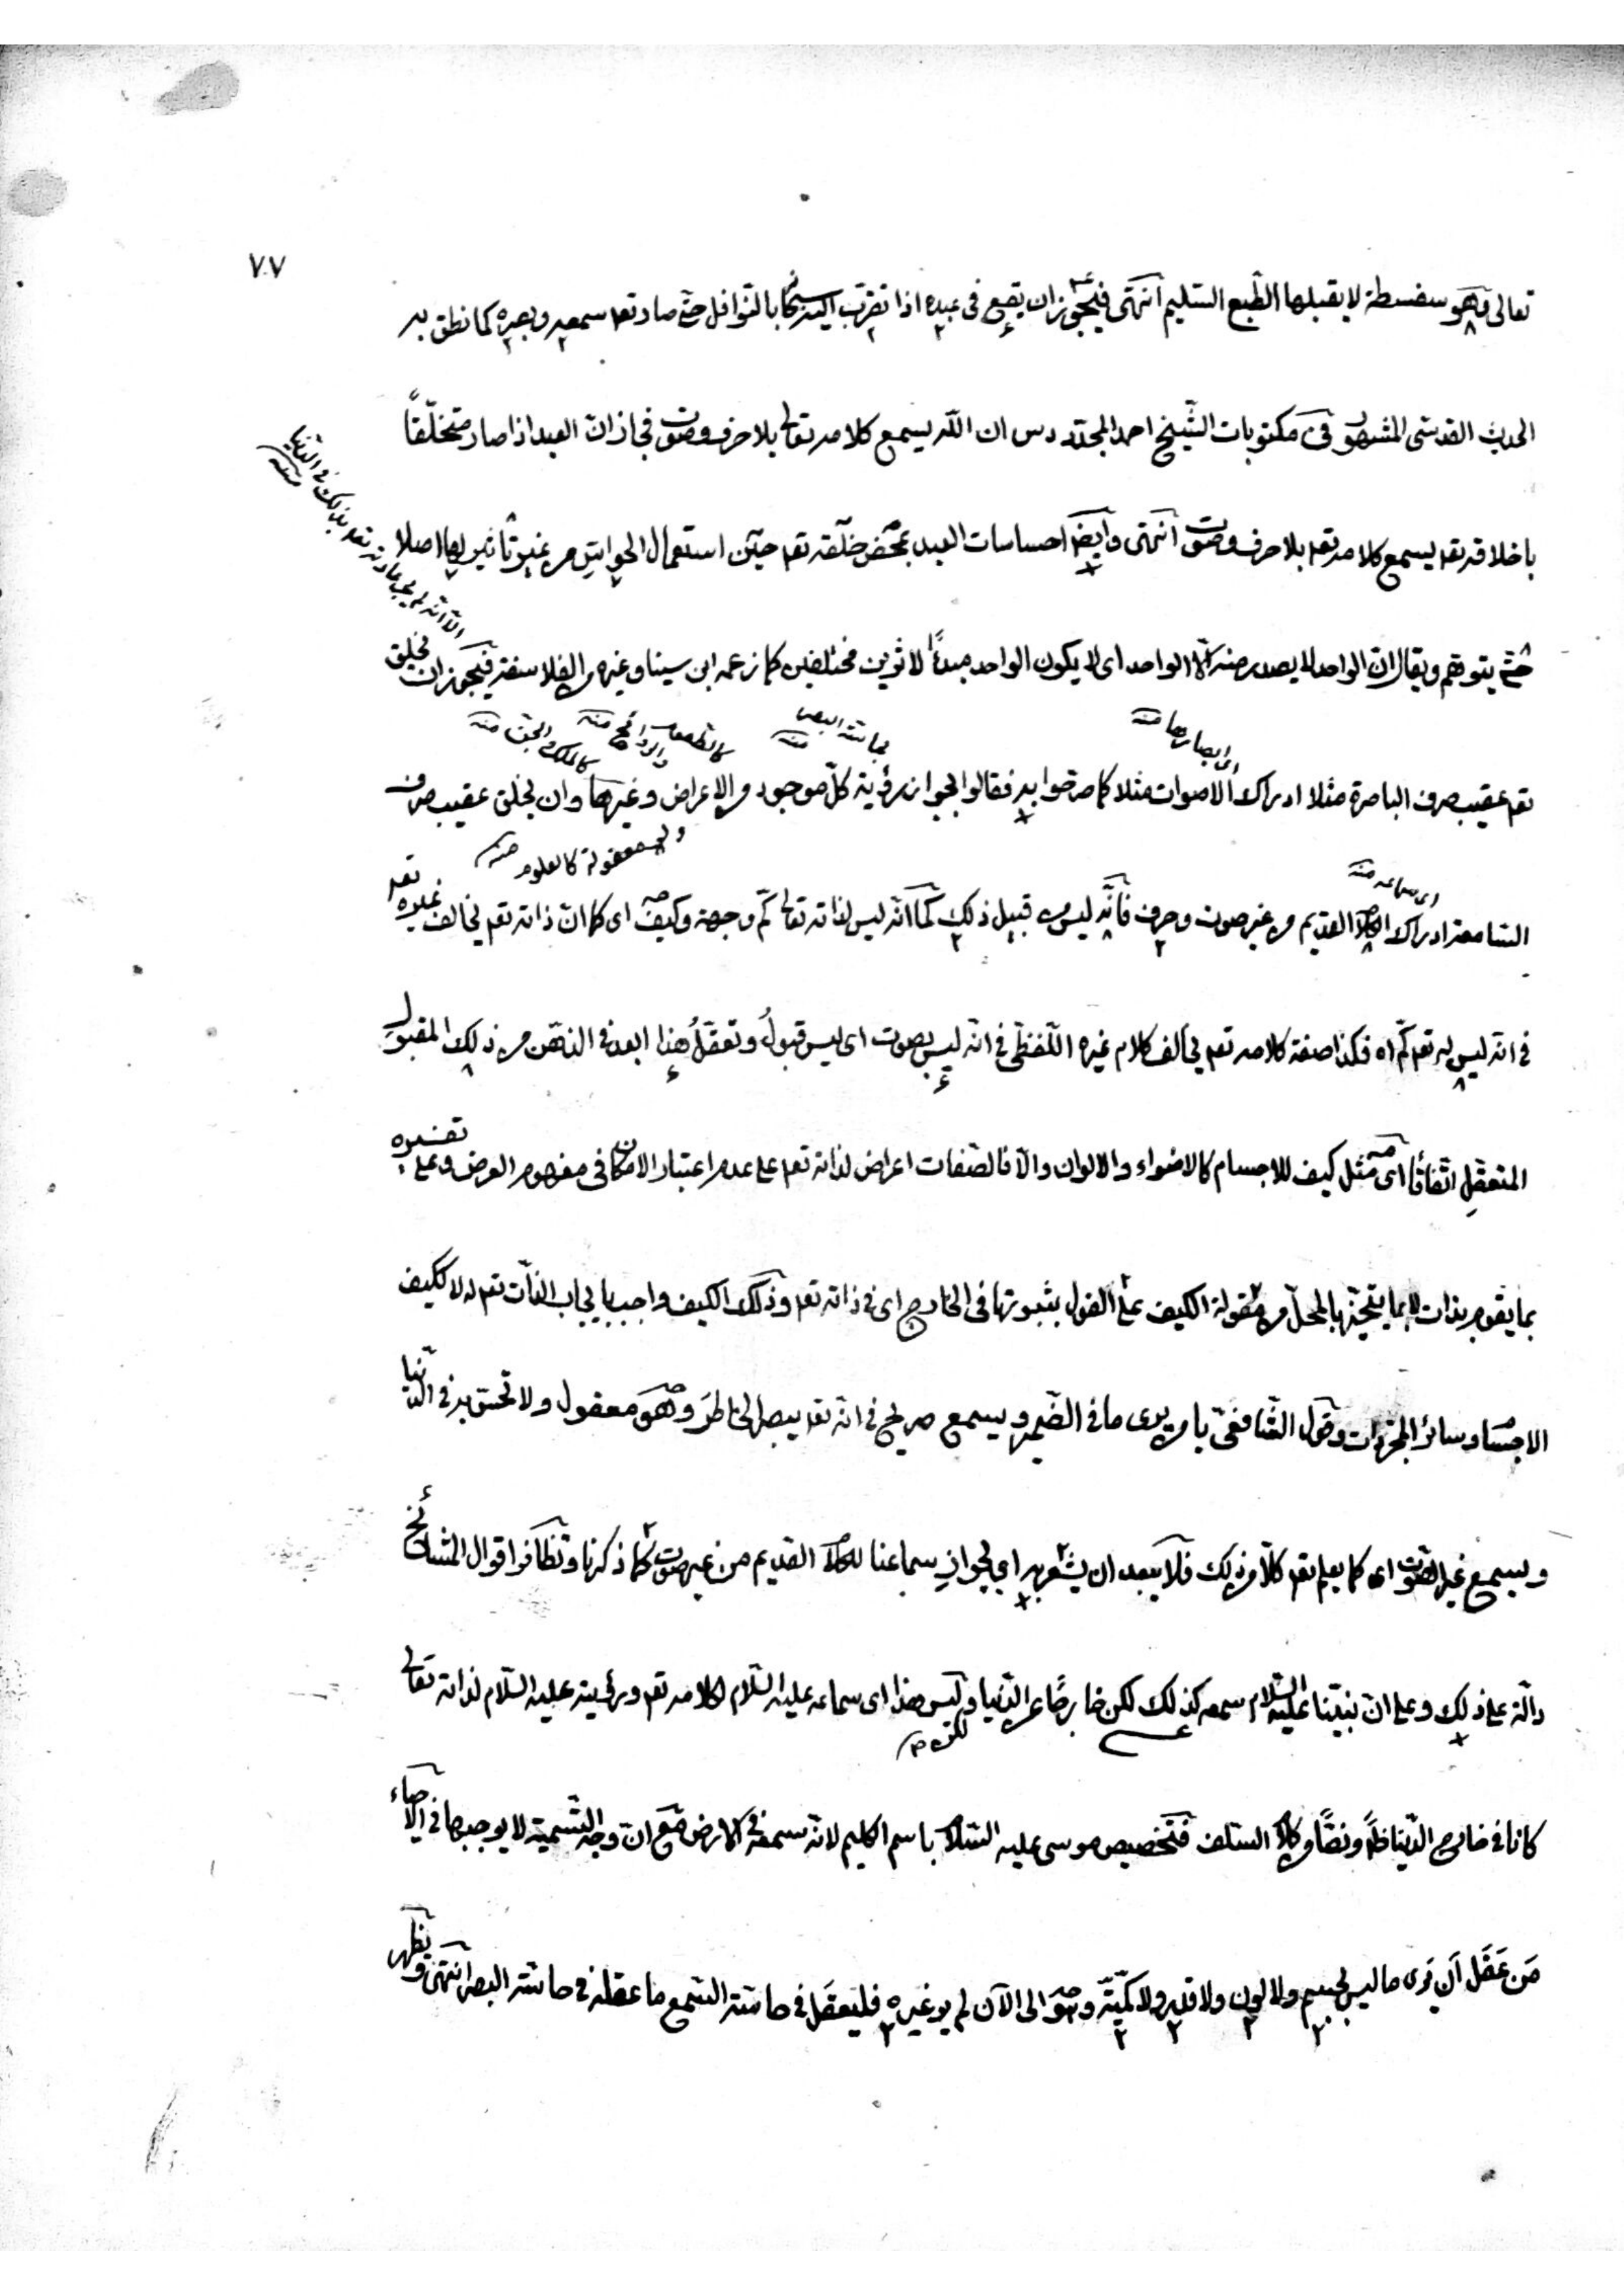 ٧٧
تعالى فهو سفسطة لا يقبلها الطبع السليم انتهى فيجوز ان يقع في عبده اذا تقرب اليه بالنوافل حتى صار تعـ سمعه وبصره كما نطق به
الحديث القدسي المشهور وفي مكتوبات الشيخ احمد المجدد دس ان الله يسمع كلامه تعالى بلا حرف وصوت فجاز ان العبد اذا صار متخلّقاً
باخلاقه تعـ يسمع كلامه تعـ بلا حرف وصوت انتهى وايضا احساسات العبد بمحض خلقه تعـ حين استعمال الحواس من غير تأثير لها اصلا
الا انه لم يجر عادته تعـ بذلك في الدنيا منه
حتى يتوهم ويقال ان الواحد لا يصدر منه الا الواحد اى لا يكون الواحد مبدءاً لاثرين مختلفين كما زعمه ابن سينا وغيره من الفلاسفة فيجوز ان يخلق
اى ابصارها منه
بحاسة البصر منه
كالطعوم والروائح منه
كالملك والجن منه
تعـ عقيب صرف الباصرة مثلا ادراك الاصوات مثلا كما صرحوا به فقالوا بجواز رؤية كلّ موجود من الاعراض وغيرها وان يخلق عقيب صرف
كالعلوم منه
اى سماعه منه
السامعة ادراك الكلام القديم من غير صوت وحرف فانّه ليس من قبيل ذلك كما انّه ليس لذاته تعالى كمّ وجهة وكيف اى كما ان ذاته تعـ يخالف غيره تعـ
في انه ليس له تعـ كمّ اه فكذا صفة كلامه تعـ يخالف كلام غيره اللفظي في انه ليس بصوت اى ليس قبولُ وتعقّلُ هذا ابعد في الذهن من ذلك المقبول
المتعقّل اتفاقا اى مثل كيف للاجسام كالاضواء والالوان والا فالصفات اعراض لذاته تعـ على عدم اعتبار الامكان في مفهوم العرض وعلى تفسيره
بما يقوم بذات لا بما يتحيز بالمحلّ من مقولة الكيف على القول بثبوتها في الخارج اى في ذاته تعـ وذلك الكيف واجب بايجاب الذات تعـ له لا ككيف
الاجسام وسائر المجردات وقول الشافعيّ يا من يرى ما في الضمير ويسمع صريح في انه تعـ يبصر الخاطر وهو معقول ولا تحسّ به في الدنيا
ويسمع غير الصوت اى كما يعلم تعـ كلاّ من ذلك فلا يبعد ان يشعر به اى بجواز سماعنا للكلام القديم من غير صوت كما ذكرنا وتظافر اقوال المشائخ
دالّة على ذلك وعلى ان نبيّنا عليه السلام سمعه كذلك لكن خارجًا عن الدنيا وليس هذا اى سماعه عليه السلام لكلامه تعـ ورؤيته عليه السلام لذاته تعالى
كانا في خارج الدنيا ونصّاً وكلام السلف فتخصيص موسى عليه السلام باسم الكليم لانه سمعه في الارض مع ان وجه التسمية لا يوجبها في الاحياء
مَن عَقَل اَن يرى ما ليس بجسم ولا لون ولا قدر ولا كميّة وهو الى الآن لم ير غيره فليعقل في حاسّة السمع ما عقله في حاسّة البصر انتهى ويظهر